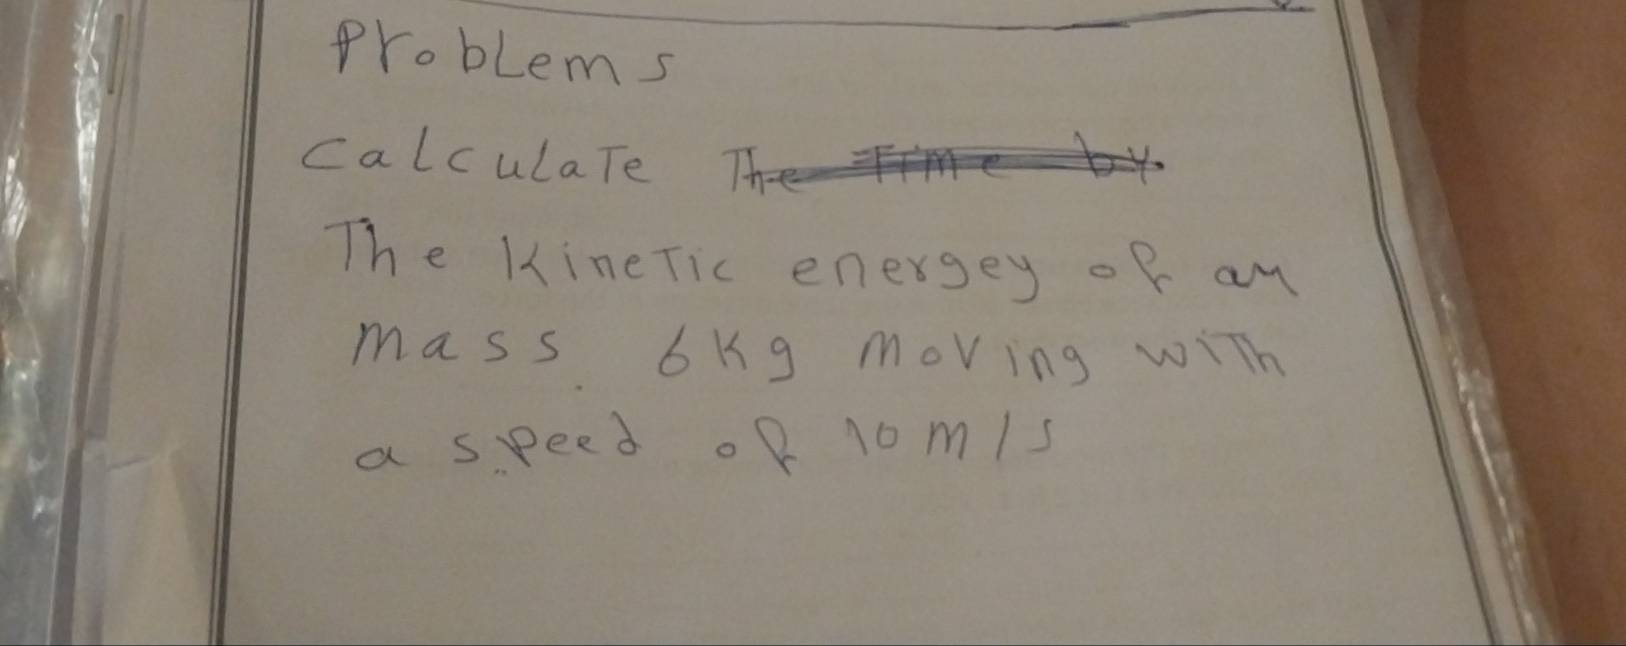 Problems
Calculate The Time by
The Kinetic energey of an
mass 6Kg moving with
a speed of 10 m/s